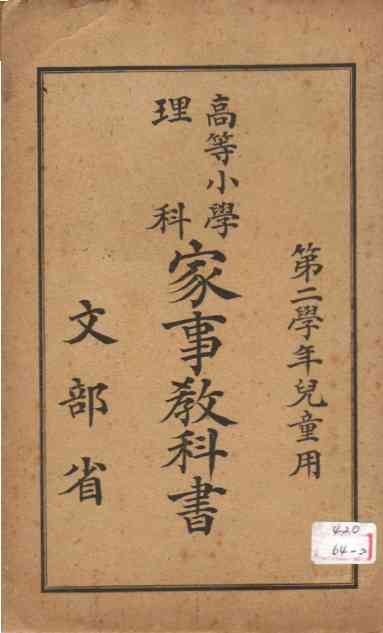 第二學年兒童用
高等小學
理科
家事教科書
文部省
420
64-2